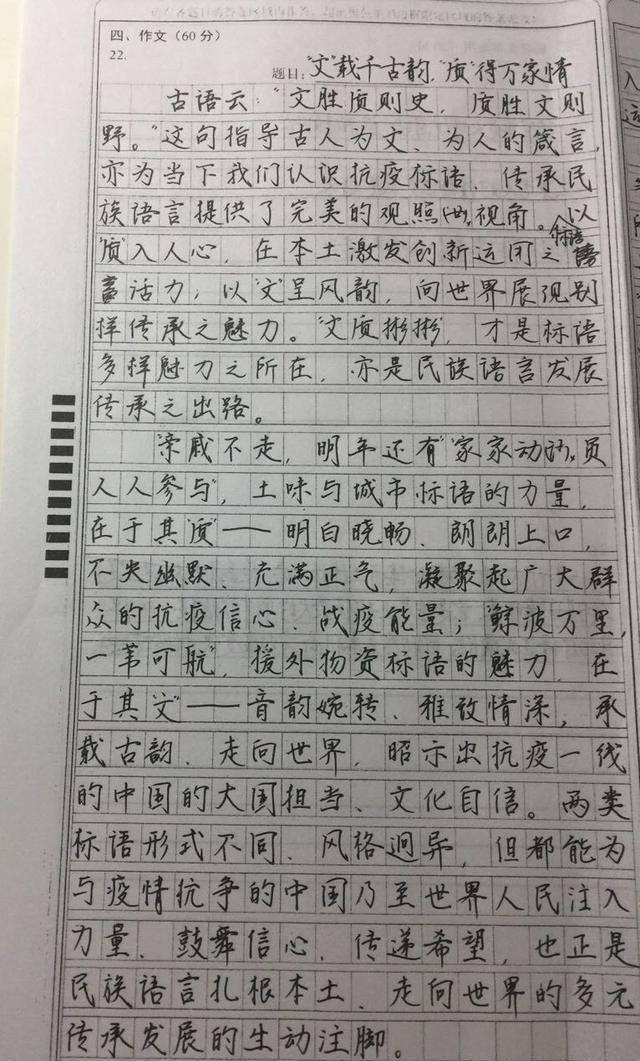 四、作文（60分）
22.
题目："文"载千古韵 "质"得万家情
古语云："文胜质则史，质胜文则
野。"这句指导古人为文、为人的箴言，
亦为当下我们认识抗疫标语、传承民
族语言提供了完美的观照视角。以
"质"入人心，在本土激发创新运用之标语
活力；以"文"呈风韵，向世界展现别
样传承之魅力。"文质彬彬"，才是标语
多样魅力之所在，亦是民族语言发展
传承之出路。
"亲戚不走，明年还有""家家动员，
人人参与"，土味与城市标语的力量，
在于其"质"——明白晓畅、朗朗上口，
不失幽默、充满正气，凝聚起广大群
众的抗疫信心、战疫能量；"鲸波万里，
一苇可航"，援外物资标语的魅力，在
于其"文"——音韵婉转、雅致情深，承
载古韵、走向世界，昭示出抗疫一线
的中国的大国担当、文化自信。两类
标语形式不同、风格迥异，但都能为
与疫情抗争的中国乃至世界人民注入
力量、鼓舞信心、传递希望，也正是
民族语言扎根本土、走向世界的多元
传承发展的生动注脚。
入